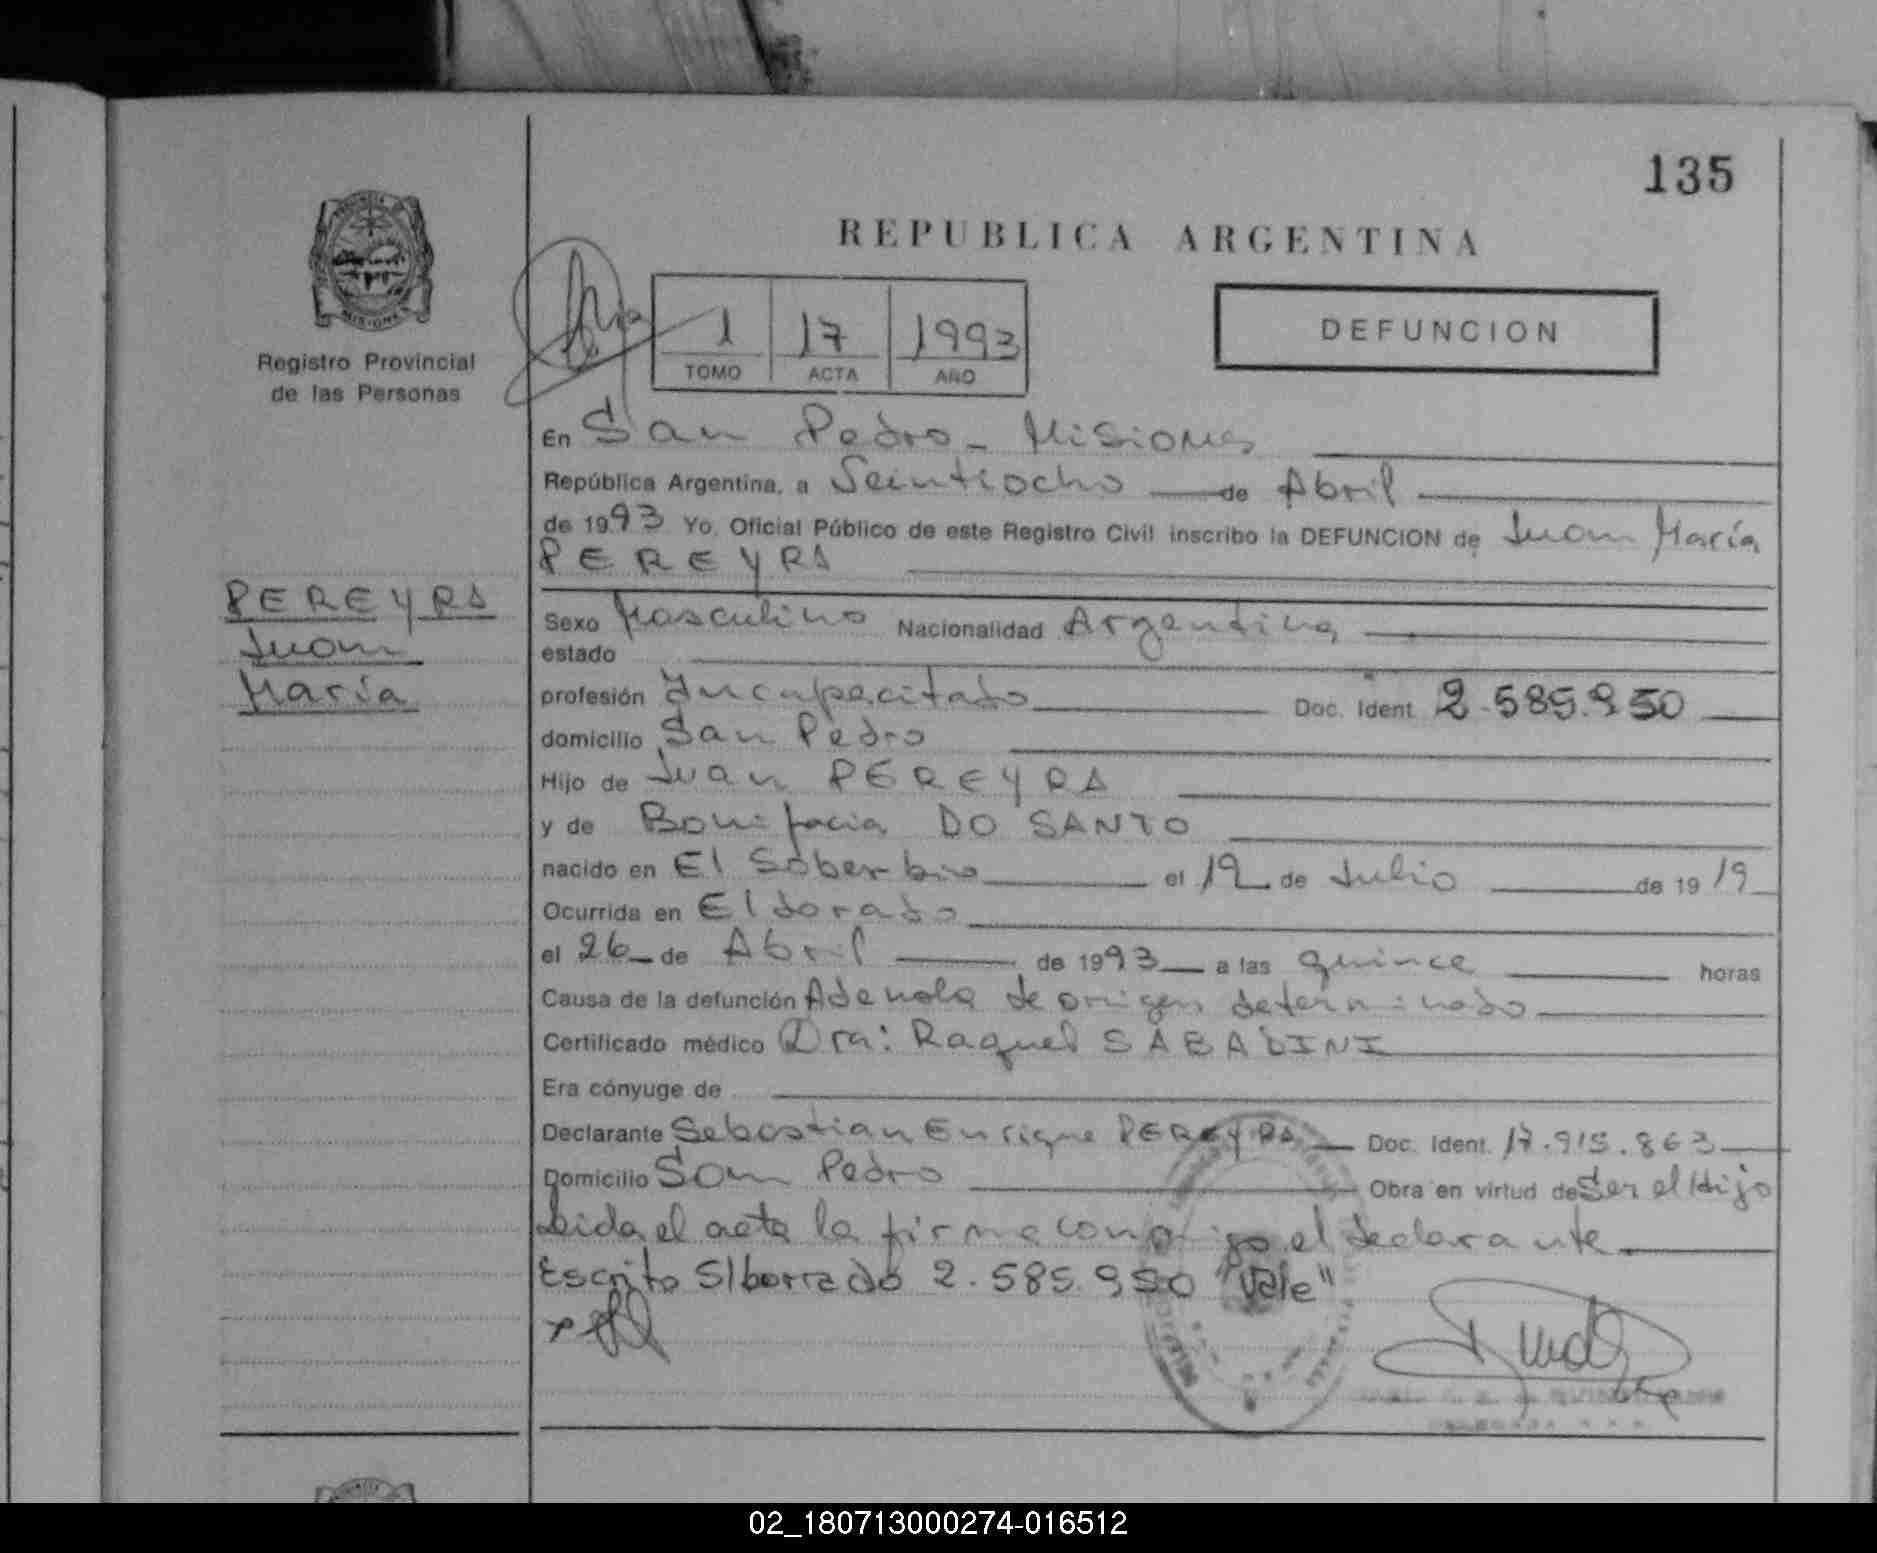 135
REPUBLICA ARGENTINA
Registro Provincial
de las Personas
1 17 1993
TOMO ACTA AÑO
DEFUNCION
En San Pedro - Misiones
República Argentina, a Veintiocho de Abril
de 1993 Yo, Oficial Público de este Registro Civil inscribo la DEFUNCION de Juan María
PEREYRA
PEREYRA
Juan
María
Sexo Masculino Nacionalidad Argentina
estado
profesión Incapacitado Doc. Ident. 2.585.950
domicilio San Pedro
Hijo de Juan PEREYRA
y de Bonifacia DO SANTO
nacido en El Soberbio el 12 de Julio de 1919
Ocurrida en Eldorado
el 26 de Abril de 1993 a las quince horas
Causa de la defunción de origen determinado
Certificado médico Dra: Raquel SABADINI
Era cónyuge de
Declarante Sebastian Enrique PEREYRA Doc. Ident. 17.915.863
Domicilio San Pedro Obra en virtud de Ser el Hijo
Leida el acta la firma conmigo el declarante
Escrito S/borrado 2.585.950 "Vale"
02_180713000274-016512